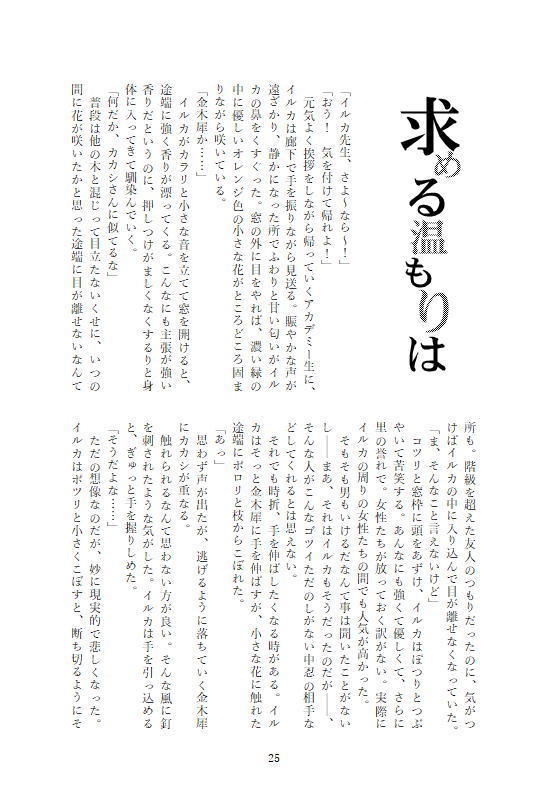 求める温もりは
「イルカ先生、さよ〜なら〜！」
「おう！　気を付けて帰れよ！」
　元気よく挨拶をしながら帰っていくアカデミー生に、
イルカは廊下で手を振りながら見送る。賑やかな声が
遠ざかり、静かになった所でふわりと甘い匂いがイル
カの鼻をくすぐった。窓の外に目をやれば、濃い緑の
中に優しいオレンジ色の小さな花がところどころ固ま
りながら咲いている。
「金木犀か……」
　イルカがカラリと小さな音を立てて窓を開けると、
途端に強く香りが漂ってくる。こんなにも主張が強い
香りだというのに、押しつけがましくなくするりと身
体に入ってきて馴染んでいく。
「何だか、カカシさんに似てるな」
　普段は他の木と混じって目立たないくせに、いつの
間に花が咲いたかと思った途端に目が離せないなんて
所も。階級を超えた友人のつもりだったのに、気がつ
けばイルカの中に入り込んで目が離せなくなっていた。
「ま、そんなこと言えないけど」
　コツリと窓枠に頭をあずけ、イルカはぽつりとつぶ
やいて苦笑する。あんなにも強くて優しくて、さらに
里の誉れで。女性たちが放っておく訳がない。実際に
イルカの周りの女性たちの間でも人気が高かった。
　そもそも男もいけるだなんて事は聞いたことがない
し――まあ、それはイルカもそうだったのだが――、
そんな人がこんなゴツイただのしがない中忍の相手な
どしてくれるとは思えない。
　それでも時折、手を伸ばしたくなる時がある。イル
カはそっと金木犀に手を伸ばすが、小さな花に触れた
途端にポロリと枝からこぼれた。
「あっ」
　思わず声が出たが、逃げるように落ちていく金木犀
にカカシが重なる。
　触れられるなんて思わない方が良い。そんな風に釘
を刺されたような気がした。イルカは手を引っ込める
と、ぎゅっと手を握りしめた。
「そうだよな……」
　ただの想像なのだが、妙に現実的で悲しくなった。
イルカはポツリと小さくこぼすと、断ち切るようにそ
25